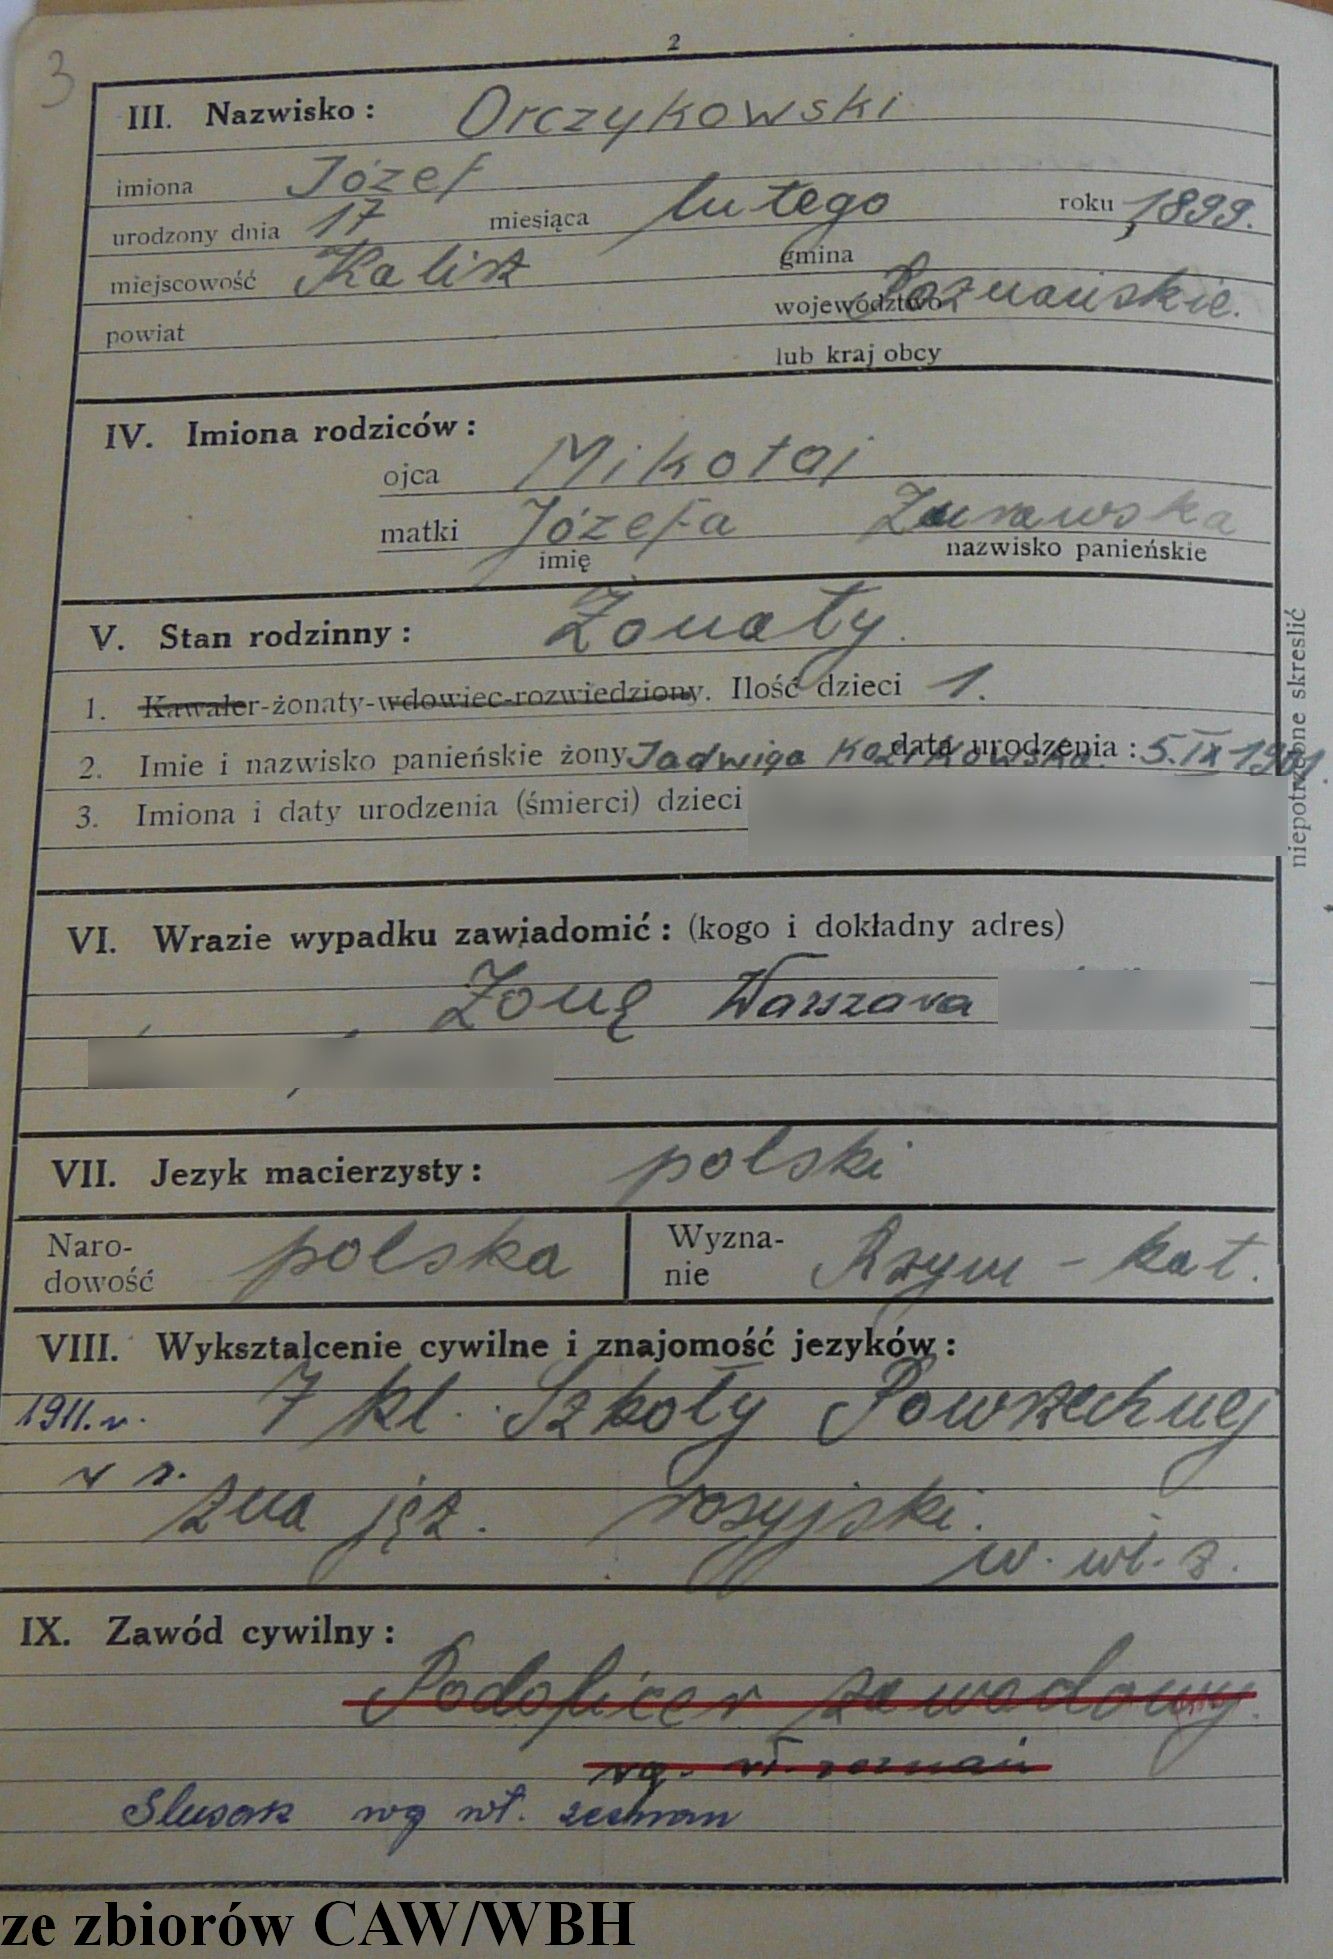 3
2
III. Nazwisko: Orczykowski
imiona Józef
urodzony dnia 17 miesiąca lutego roku 1899.
miejscowość Kalisz gmina
województwo Poznańskie.
powiat
lub kraj obcy
IV. Imiona rodziców:
ojca Mikołaj
matki Józefa Żurawska
imię nazwisko panieńskie
V. Stan rodzinny: Żonaty.
1. Kawaler-żonaty-wdowiec-rozwiedziony. Ilość dzieci 1.
2. Imie i nazwisko panieńskie żony Jadwiga data urodzenia: 5.IX 1901.
3. Imiona i daty urodzenia (śmierci) dzieci
niepotrzebne skreslić
VI. Wrazie wypadku zawiadomić: (kogo i dokładny adres)
Żonę Warszawa
VII. Jezyk macierzysty: polski
Naro-
dowość polska
Wyzna-
nie Rzym-kat.
VIII. Wyksztalcenie cywilne i znajomość jezyków:
1911.r. 7 kl. Szkoły Powszechnej
zna jęz. rosyjski.
w. wł. z.
IX. Zawód cywilny:
Podoficer zawodowy.
wg. wł. zeznań
Slusarz wg wł. zeznan
ze zbiorów CAW/WBH